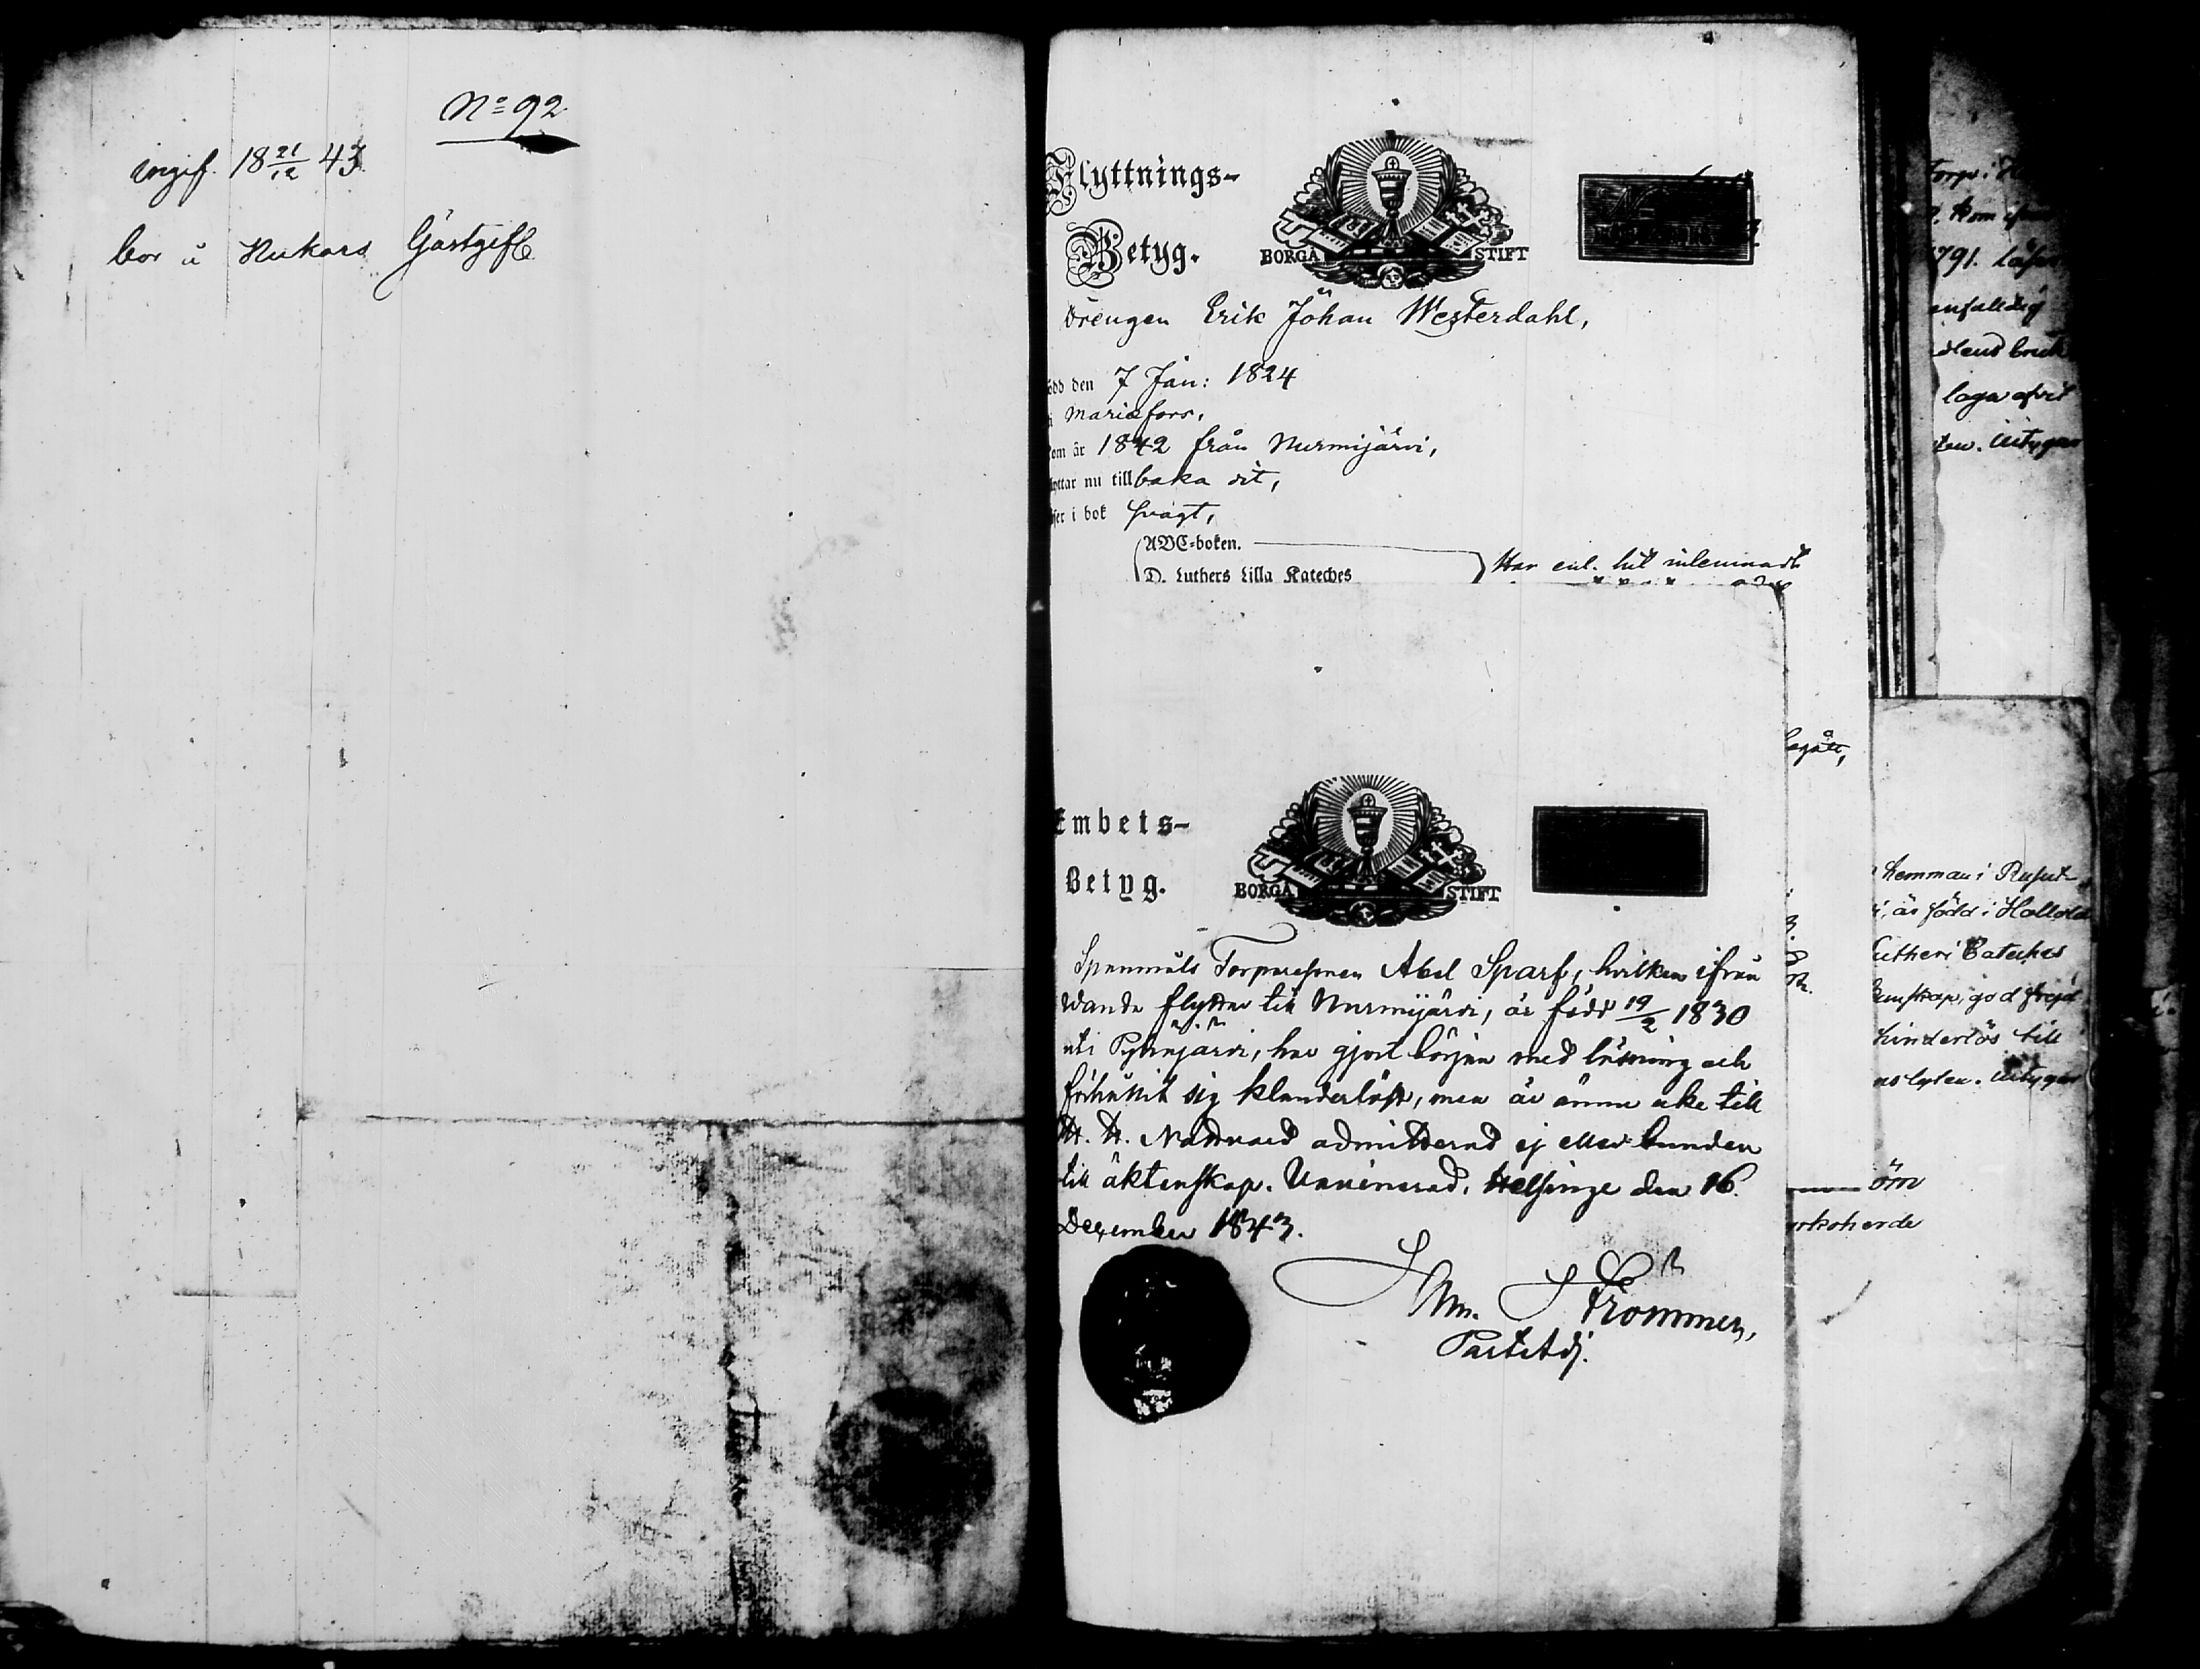 No 92
ingif. 18 21/12 43
bor å Nukars Gästgifv.
Flyttnings-
Betyg.
BORGÅ STIFT
Drengen Erik Johan Westerdahl,
född den 7 Jan: 1824
i Mariæfors,
kom år 1842 från Nurmijärvi,
flyttar nu tillbaka dit,
läser i bok svagt,
ABC-boken.
D. Luthers Lilla Kateches
Har enl. hit inlemnadt
Embets-
Betyg.
BORGÅ STIFT
Torparesonen Abel Sparf, hvilken ifrån
Wanda flyttar till Nurmijärvi, är född 19/2 1830
uti Pyhäjärvi, har gjort början med läsning och
förhållit sig klanderlöst, men är ännu icke till
H. H. Nattvard admitterad ej eller bunden
till äktenskap. Vaccinerad. Helsinge den 16
December 1843.
Strömmer,
Past. Adj.
1791. Läser
enfalldig
laga
Intygar
begått,
hemman i
är född i Hollola
Lutheri Cateches
god frejd
hinderlös till
Intygar
yrkoherde